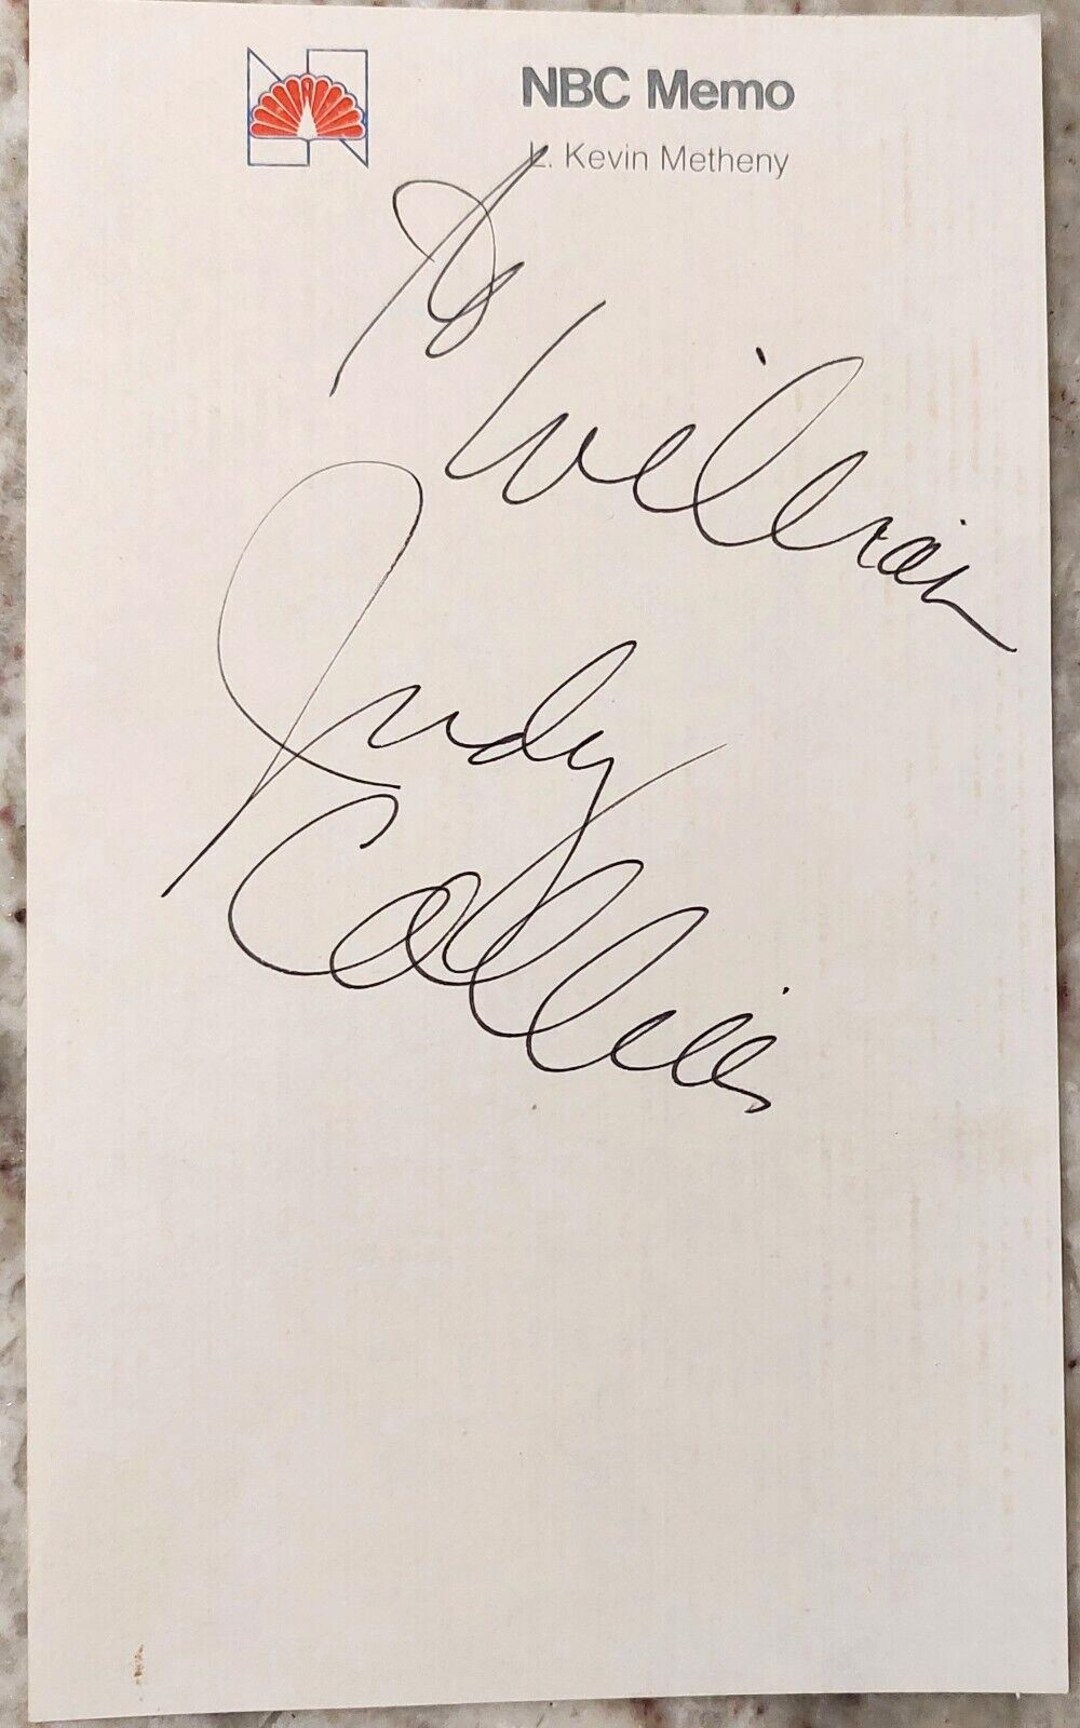 NBC Memo
L. Kevin Metheny
To William
Judy
Collins